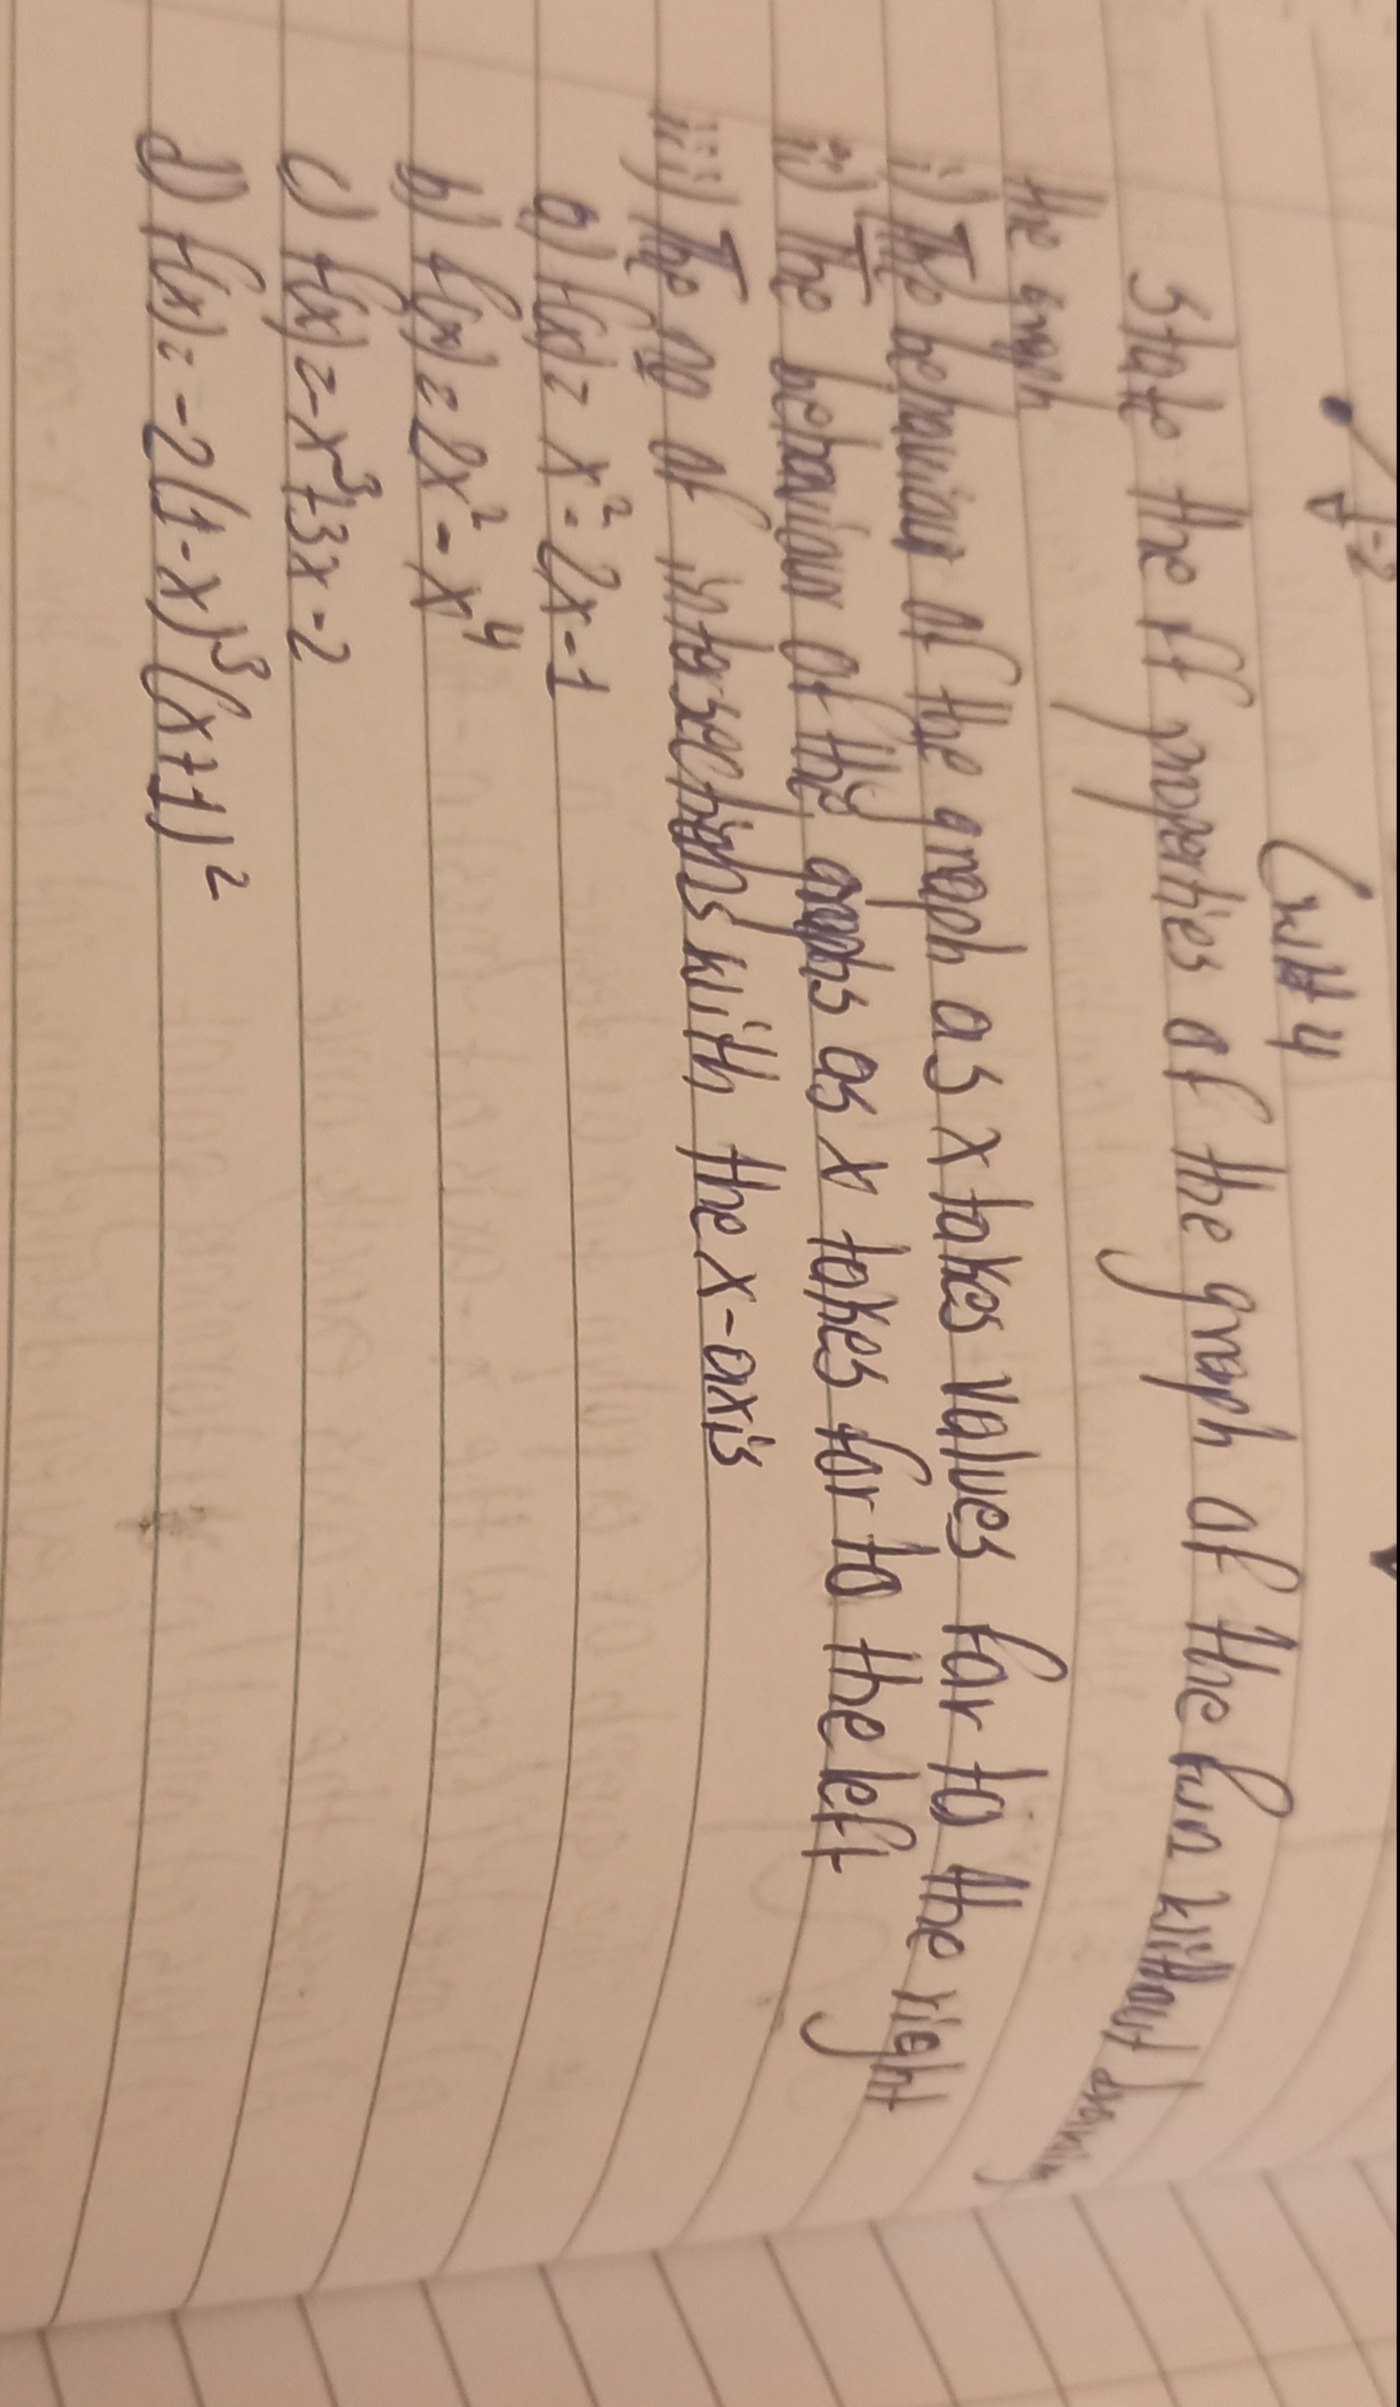 CW # 4
State the ff properties of the graph of the fun without drawing
the graph
i) The behaviour of the graph as x takes values far to the right
ii) The behaviour of the graphs as x takes far to the left
iii) The no of intersections with the x-axis
a) f(x) = x² - 2x - 1
b) f(x) = 2x² - x⁴
c) f(x) = -x³ + 3x - 2
d) f(x) = -2(1-x)³(x+1)²